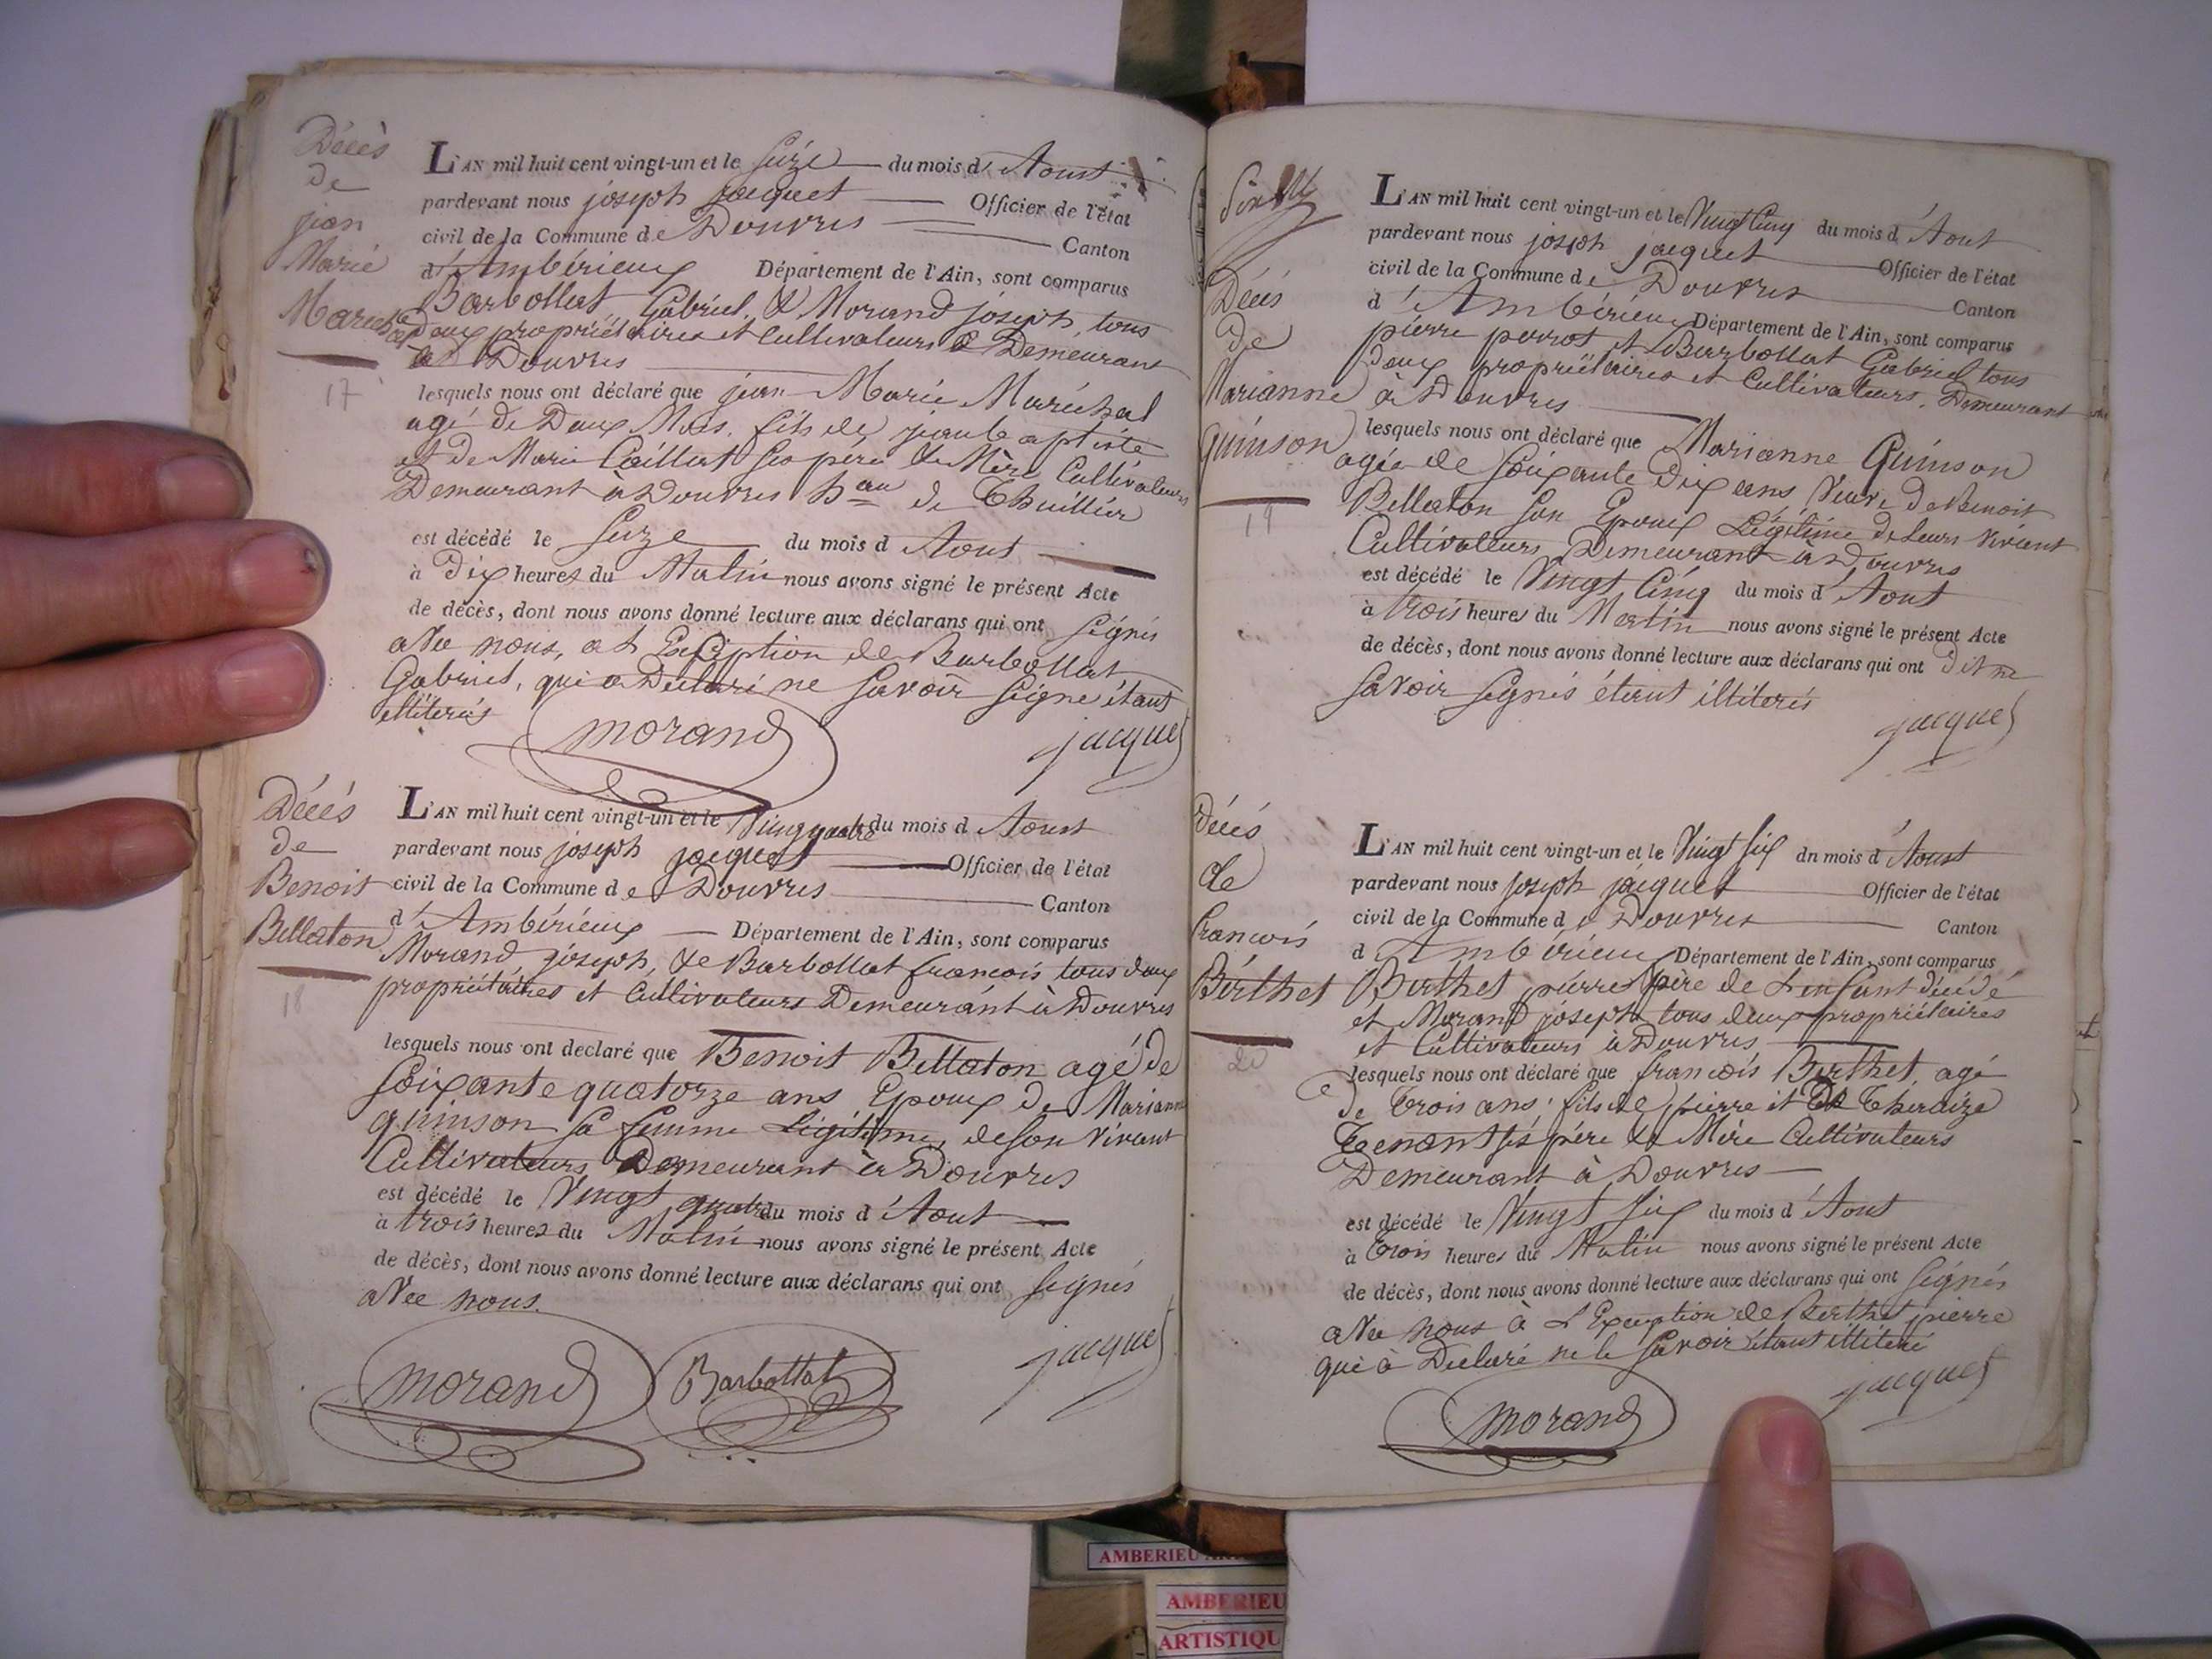 Décès
de
jean
Marie
Maréchal
17
L'AN mil huit cent vingt-un et le Seize du mois d'Aoust
pardevant nous joseph jacquet Officier de l'état
civil de la Commune de Douvres Canton
d'Ambérieux Département de l'Ain, sont comparus
Barbollat Gabriel, & Morand joseph, tous
deux propriétaires et Cultivateurs Demeurant
à Douvres
lesquels nous ont déclaré que jean Marie Maréchal
agé de Deux Mois, fils de jean baptiste
et de Marie Caillat ses père & Mère Cultivateurs
Demeurant à Douvres hau de Thuillier
est décédé le Seize du mois d Aout
à Dix heures du Matin nous avons signé le présent Acte
de décès, dont nous avons donné lecture aux déclarans qui ont Signés
avec nous, at Exception de Barbollat
Gabriel, qui a Déclaré ne Savoir Signe étant
illiterés
morand jacquet
Décés
de
Benoit
Bellaton
18
L'AN mil huit cent vingt-un et le Vingquatre du mois d Aoust
pardevant nous joseph jacquet Officier de l'état
civil de la Commune de Douvres Canton
d'Ambérieux Département de l'Ain, sont comparus
Morand joseph, & Barbollat francois tous deux
propriétaires et Cultivateurs Demeurant à Douvres
lesquels nous ont declaré que Benoit Bellaton agé de
Soixante quatorze ans Epoux de Marianne
quinson Sa femme Légitime, de Son vivant
Cultivateurs Demeurant à Douvres
est décédé le Vingt quatre du mois d'Aout
à trois heures du Matin nous avons signé le présent Acte
de décès, dont nous avons donné lecture aux déclarans qui ont Signés
avec nous.
morand Barbollat jacquet
Décés
de
Marianne
Quinson
19
L'AN mil huit cent vingt-un et le Vingt Cinq du mois d'Aout
pardevant nous joseph jacquet Officier de l'état
civil de la Commune de Douvres Canton
d'Ambérieu Département de l'Ain, sont comparus
pierre perrot et Barbollat Gabriel tous
deux propriétaires et Cultivateurs, Demeurant
à Douvres
lesquels nous ont déclaré que Marianne Quinson
agée de Soixante Dix ans Veuve de Benoit
Bellaton Son Epoux Légitime de Leurs vivant
Cultivateurs Demeurant à Douvres
est décédé le Vingt Cinq du mois d'Aout
à trois heures du Matin nous avons signé le présent Acte
de décès, dont nous avons donné lecture aux déclarans qui ont dit ne
Savoir Signés étant illiterés
jacquet
décés
de
francois
Berthet
20
L'AN mil huit cent vingt-un et le Vingt Six du mois d'Aoust
pardevant nous joseph jacquet Officier de l'état
civil de la Commune de Douvres Canton
d'Ambérieu Département de l'Ain, sont comparus
Berthet pierre père de L'enfant décédé
et Morand joseph tous deux propriétaires
et Cultivateurs à Douvres
lesquels nous ont déclaré que francois Berthet, agé
de trois ans, fils de pierre et De Theraize
Tenant ses père & Mère Cultivateurs
Demeurant à Douvres
est décédé le Vingt Six du mois d'Aout
à trois heures du Matin nous avons signé le présent Acte
de décès, dont nous avons donné lecture aux déclarans qui ont Signés
avec nous à L'Exception de Berthet pierre
qui à Déclaré ne le Savoir étant illiteré
morand jacquet
AMBERIEU
AMBERIEU
ARTISTIQU